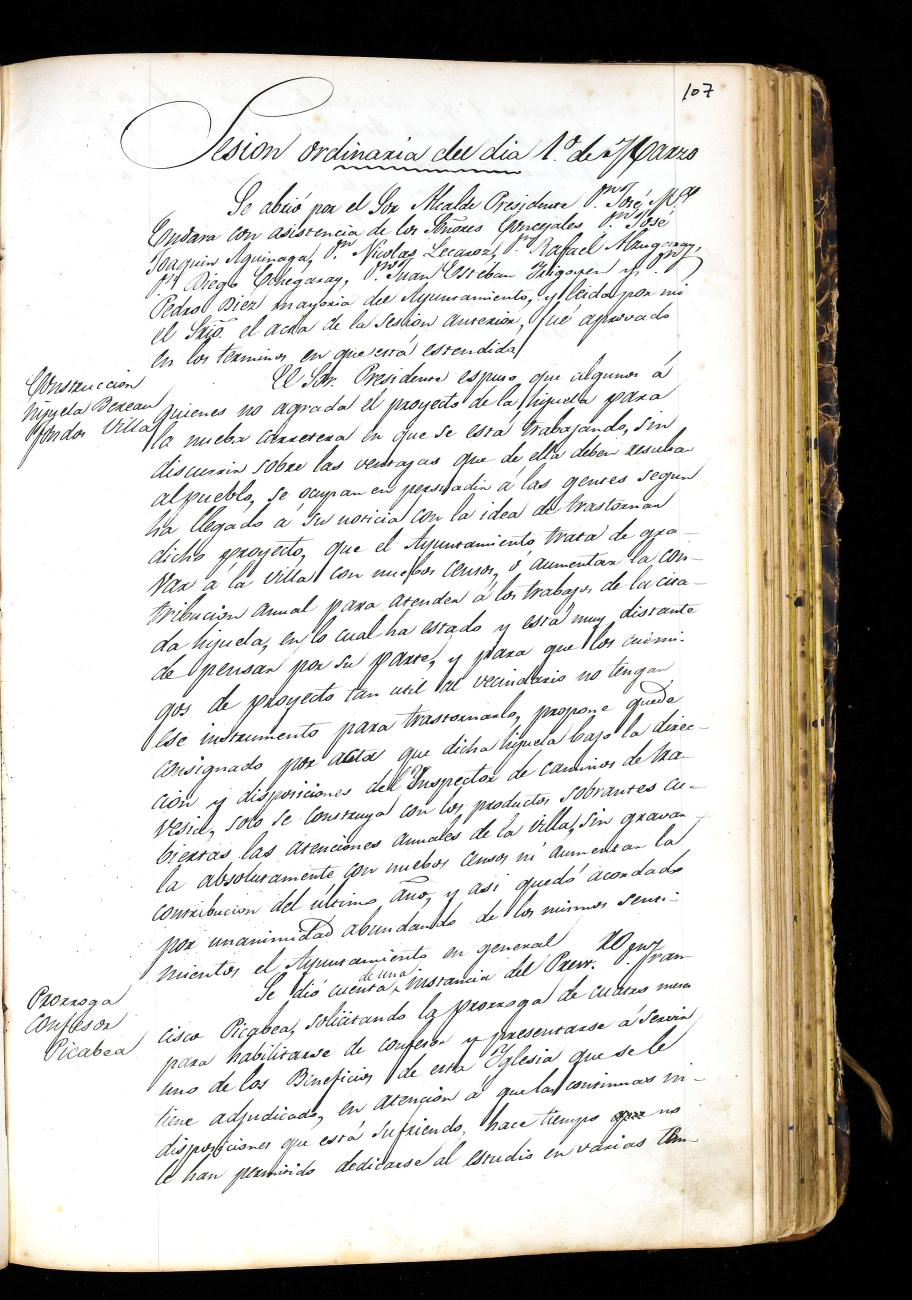 107
Sesion ordinaria del dia 1.º de Marzo
Se abrió por el Sor Alcalde Presidente D.n José M.ª
Endara con asistencia de los Señores Concejales D.n José
Joaquin Aguinaga, D.n Nicolas Lecaroz, D.n Rafael Alzugaray,
D.n Diego Echegaray, D.n Juan Esteban Irigoyen y D.n
Pedro Diez mayoria del Ayuntamiento, y leida por mi
el Srio. el acta de la sesion anterior, fué aprovado
en los terminos en que está estendida
Construccion
hijuela Bereau
fondos Villa
El Sor. Presidente espuso, que algunos á
quienes no agrada el proyecto de la hijuela para
la nueba carretera en que se está trabajando, sin
discurrir sobre las ventajas que de ella deben resultar
al pueblo, se ocupan en persuadir á las gentes segun
ha llegado á su noticia con la idea de trastornar
dicho proyecto, que el Ayuntamiento trata de gra-
var á la Villa con nuebos censos, ó aumentar la con-
tribucion anual para atender á los trabajos de la cita-
da hijuela, en lo cual ha estado y está muy distante
de pensar por su parte, y para que los enemi-
gos de proyecto tan util al vecindario no tengan
ese instrumento para trastornarlo, propone quede
consignado por acta que dicha hijuela bajo la direc-
cion y disposiciones del Inspector de caminos de tra-
vesia, solo se construya con los productos sobrantes cu-
biertas las atenciones anuales de la Villa, sin gravar-
la absolutamente con nuebos censos ni aumentar la
contribucion del último año, y asi quedó acordado
por unanimidad abundando de los mismos senti-
mientos el Ayuntamiento en general
Prorroga
Confesor
Picabea
Se dió cuenta de una instancia del Presv. D.n Fran
cisco Picabea, solicitando la prorroga de cuatro meses
para habilitarse de confesor y presentarse á servir
uno de los Beneficios de esta Iglesia que se le
tiene adjudicado, en atencion á que las continuas in-
disposiciones que está sufriendo, hace tiempo no
le han permitido dedicarse al estudio en varias tem-